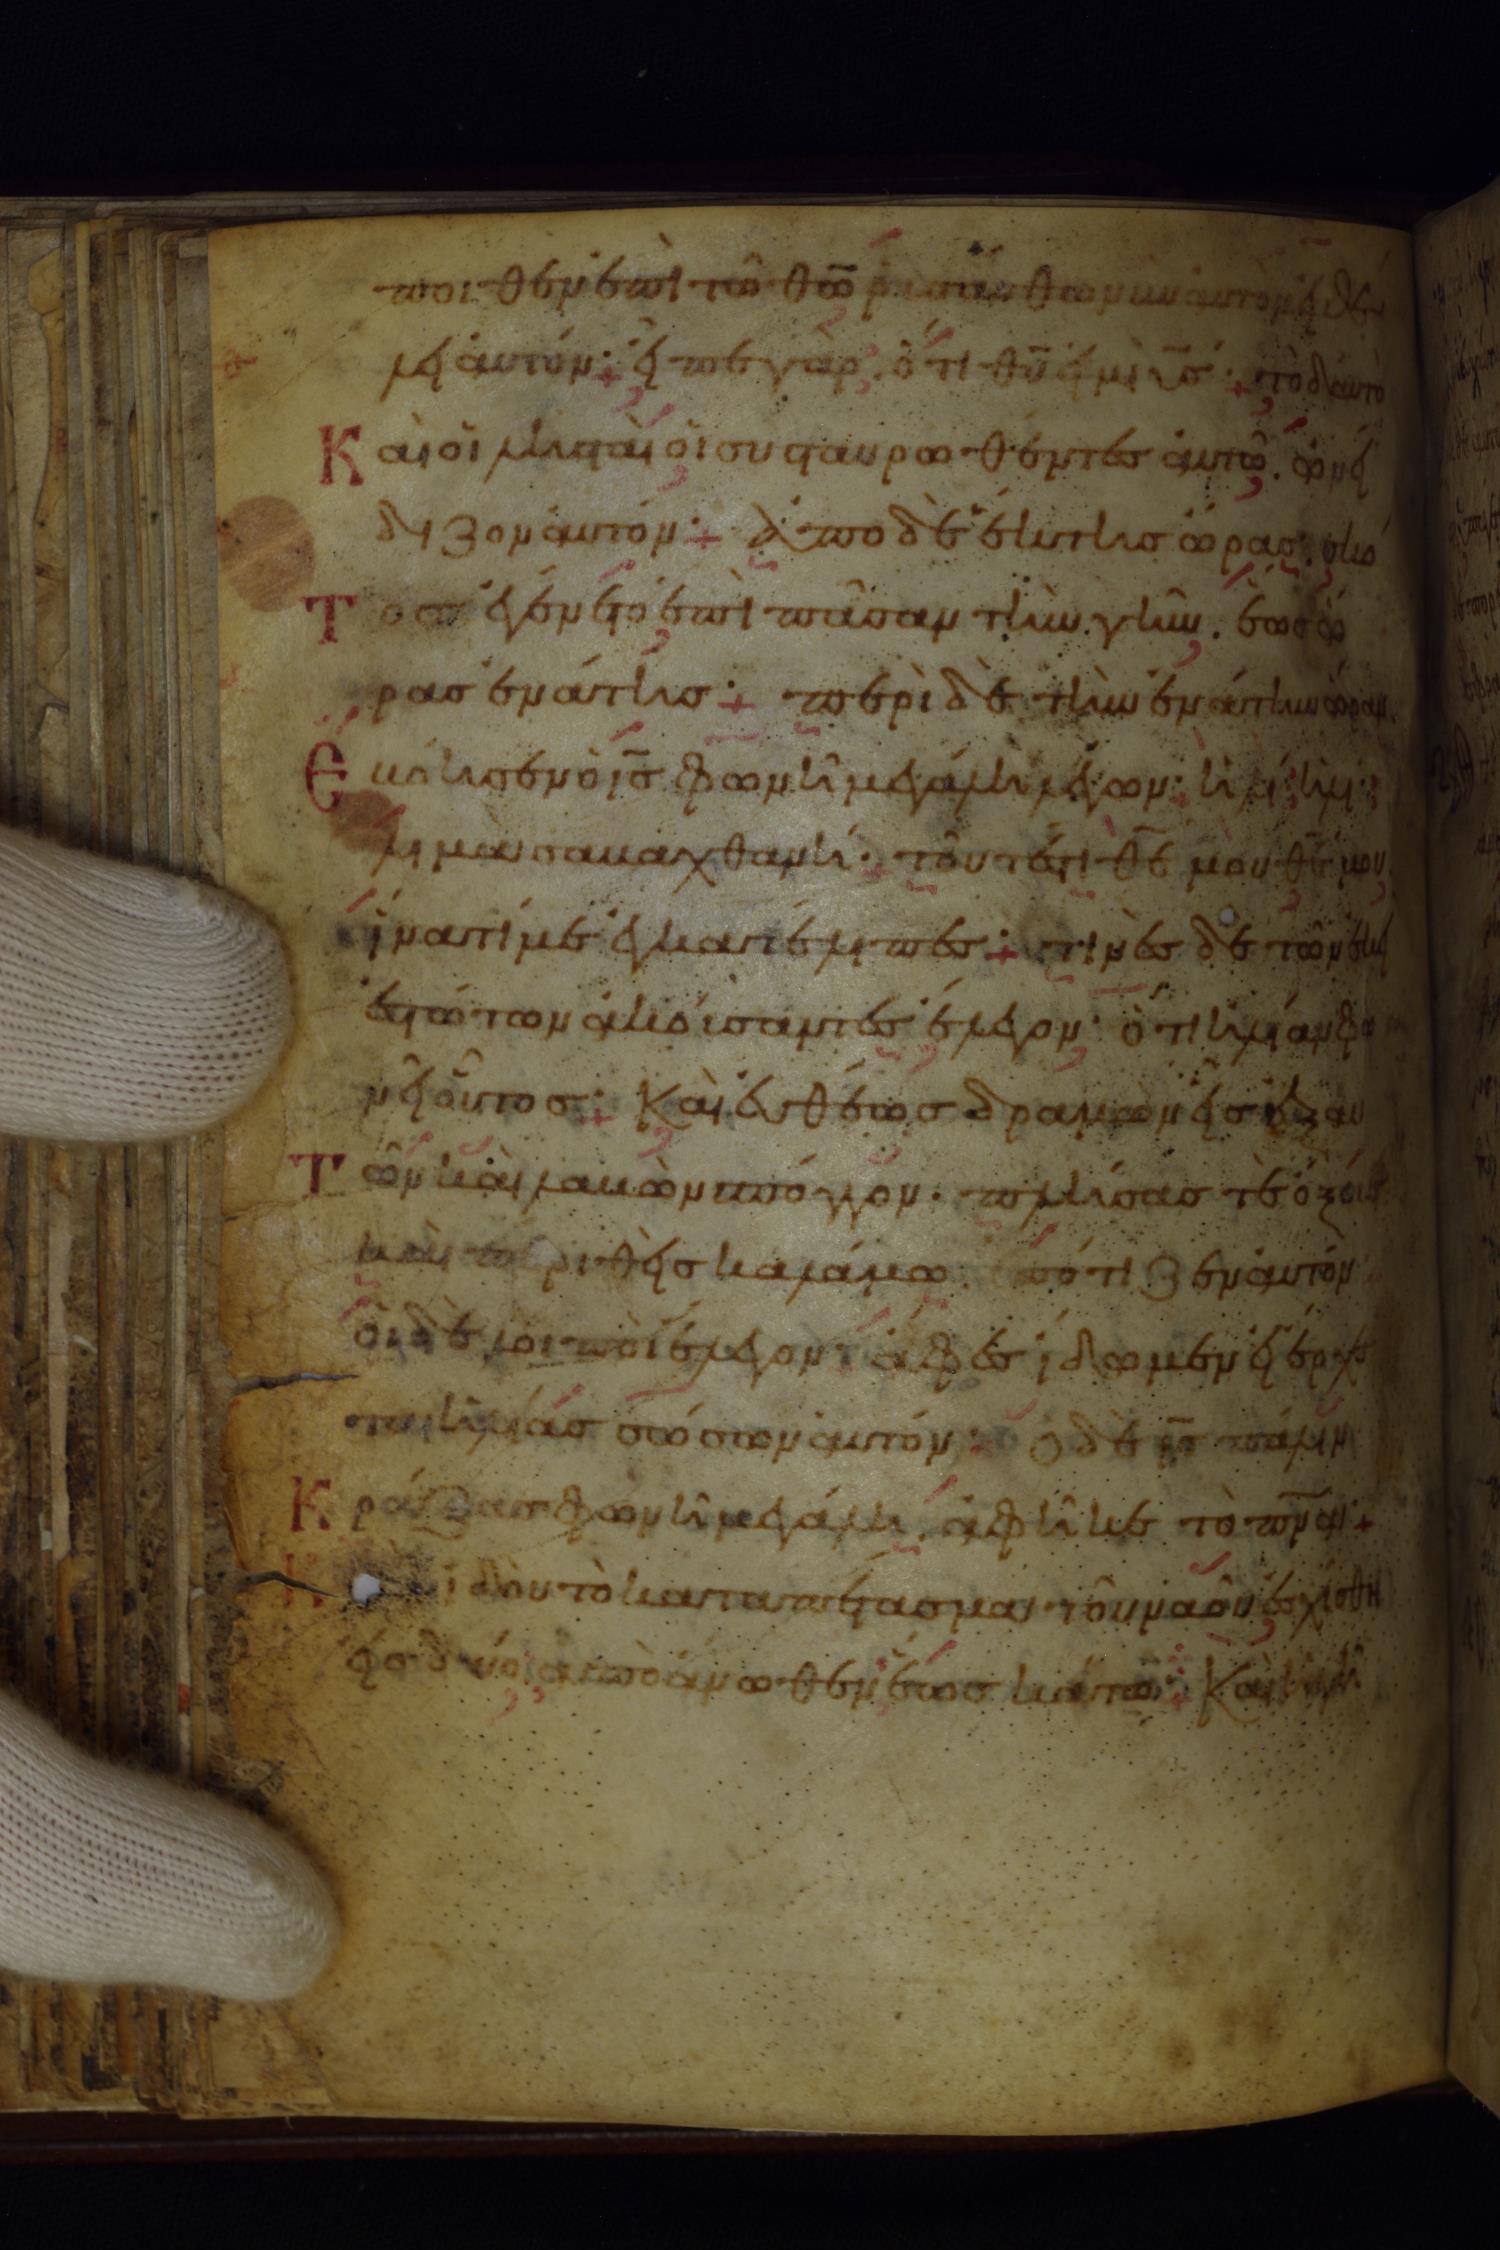 ποιθεν ἐπι τῶ θω̅ ῥυσάσθω νῦν αὐτον εἰ θέλ
λει αὐτόν· εἶπε γὰρ. ὅτι θυ̅ εἰμὶ υσ̅· τὸ δ' αὐτὸ
Και οἱ λησταὶ οἱ συσταυρωθέντες αὐτῶ. ὠνεί
διζον αὐτόν· + ἀπο δὲ ἕκτης ὥρας. σκό
Τος ἐγένετο ἐπι πᾶσαν τὴν γῆν. ἕως ὥ
ρας ἐνάτης· + περὶ δὲ τὴν ἐνάτην ὥραν.
Ἐβόησεν ὁ ις̅ φωνῆ μεγάλη λέγων· ἡλί· ἡλι·
λιμὰ σαβαχθανί· τοῦτέστι θε̅ μου θε̅ μου
ἱνατί με ἐγκατέλιπες· + τινὲς δὲ τῶν ἐκεῖ
ἑστώτων ἀκούσαντες ἔλεγον· ὅτι ἡλίαν φω
νεῖ οὗτος· + Και εὐθέως δραμὼν εἷς ἐξ αυ
Τῶν καὶ λαβὼν σπόγγον. πλήσας τὲ ὄξους
και περιθεὶς καλάμω. ἐπότιζεν αὐτόν
οἱ δὲ λοιποὶ ἔλεγον· ἄφες ἴδωμεν εἰ ἔρχε
ται ἡλίας σώσων αὐτόν· ὁ δὲ ις̅ πάλιν
Κράξας φωνῆ μεγάλη. ἀφῆκε τὸ πν̅α· +
ἰδου τὸ καταπέτασμα τοῦ ναοῦ ἐσχίσθη
εἰς δύο ἀπὸ ἄνωθεν ἕως κάτω· Και ἡ γῆ